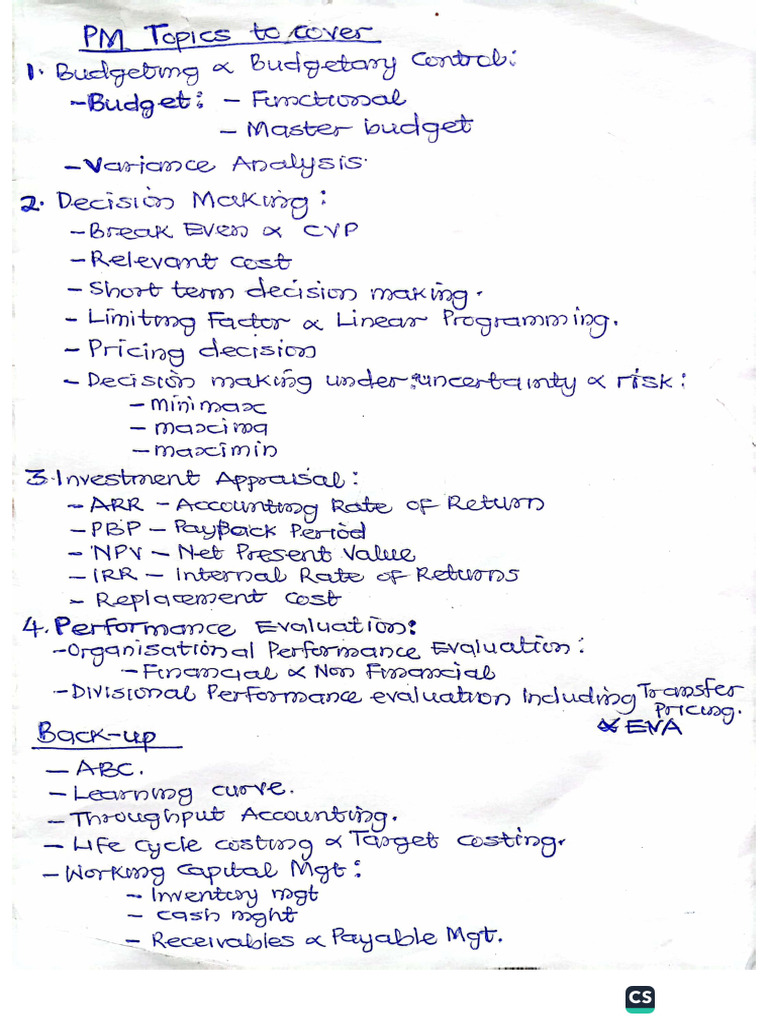 PM Topics to cover
1. Budgeting & Budgetary Control:
- Budget: - Functional
- Master budget
- Variance Analysis.
2. Decision Making:
- Break Even & CVP
- Relevant cost
- Short term decision making.
- Limiting Factor & Linear Programming.
- Pricing decision
- Decision making under uncertainty & risk:
- minimax
- maxima
- maximin
3. Investment Appraisal:
- ARR - Accounting Rate of Return
- PBP - PayBack Period
- NPV - Net Present Value
- IRR - Internal Rate of Returns
- Replacement cost
4. Performance Evaluation:
- Organisational Performance Evaluation:
- Financial & Non Financial
- Divisional Performance evaluation Including Transfer
Pricing.
& EVA
Back-up
- ABC.
- Learning curve.
- Throughput Accounting.
- Life cycle costing & Target costing.
- Working Capital Mgt:
- Inventory mgt
- cash mght
- Receivables & Payable Mgt.
CS